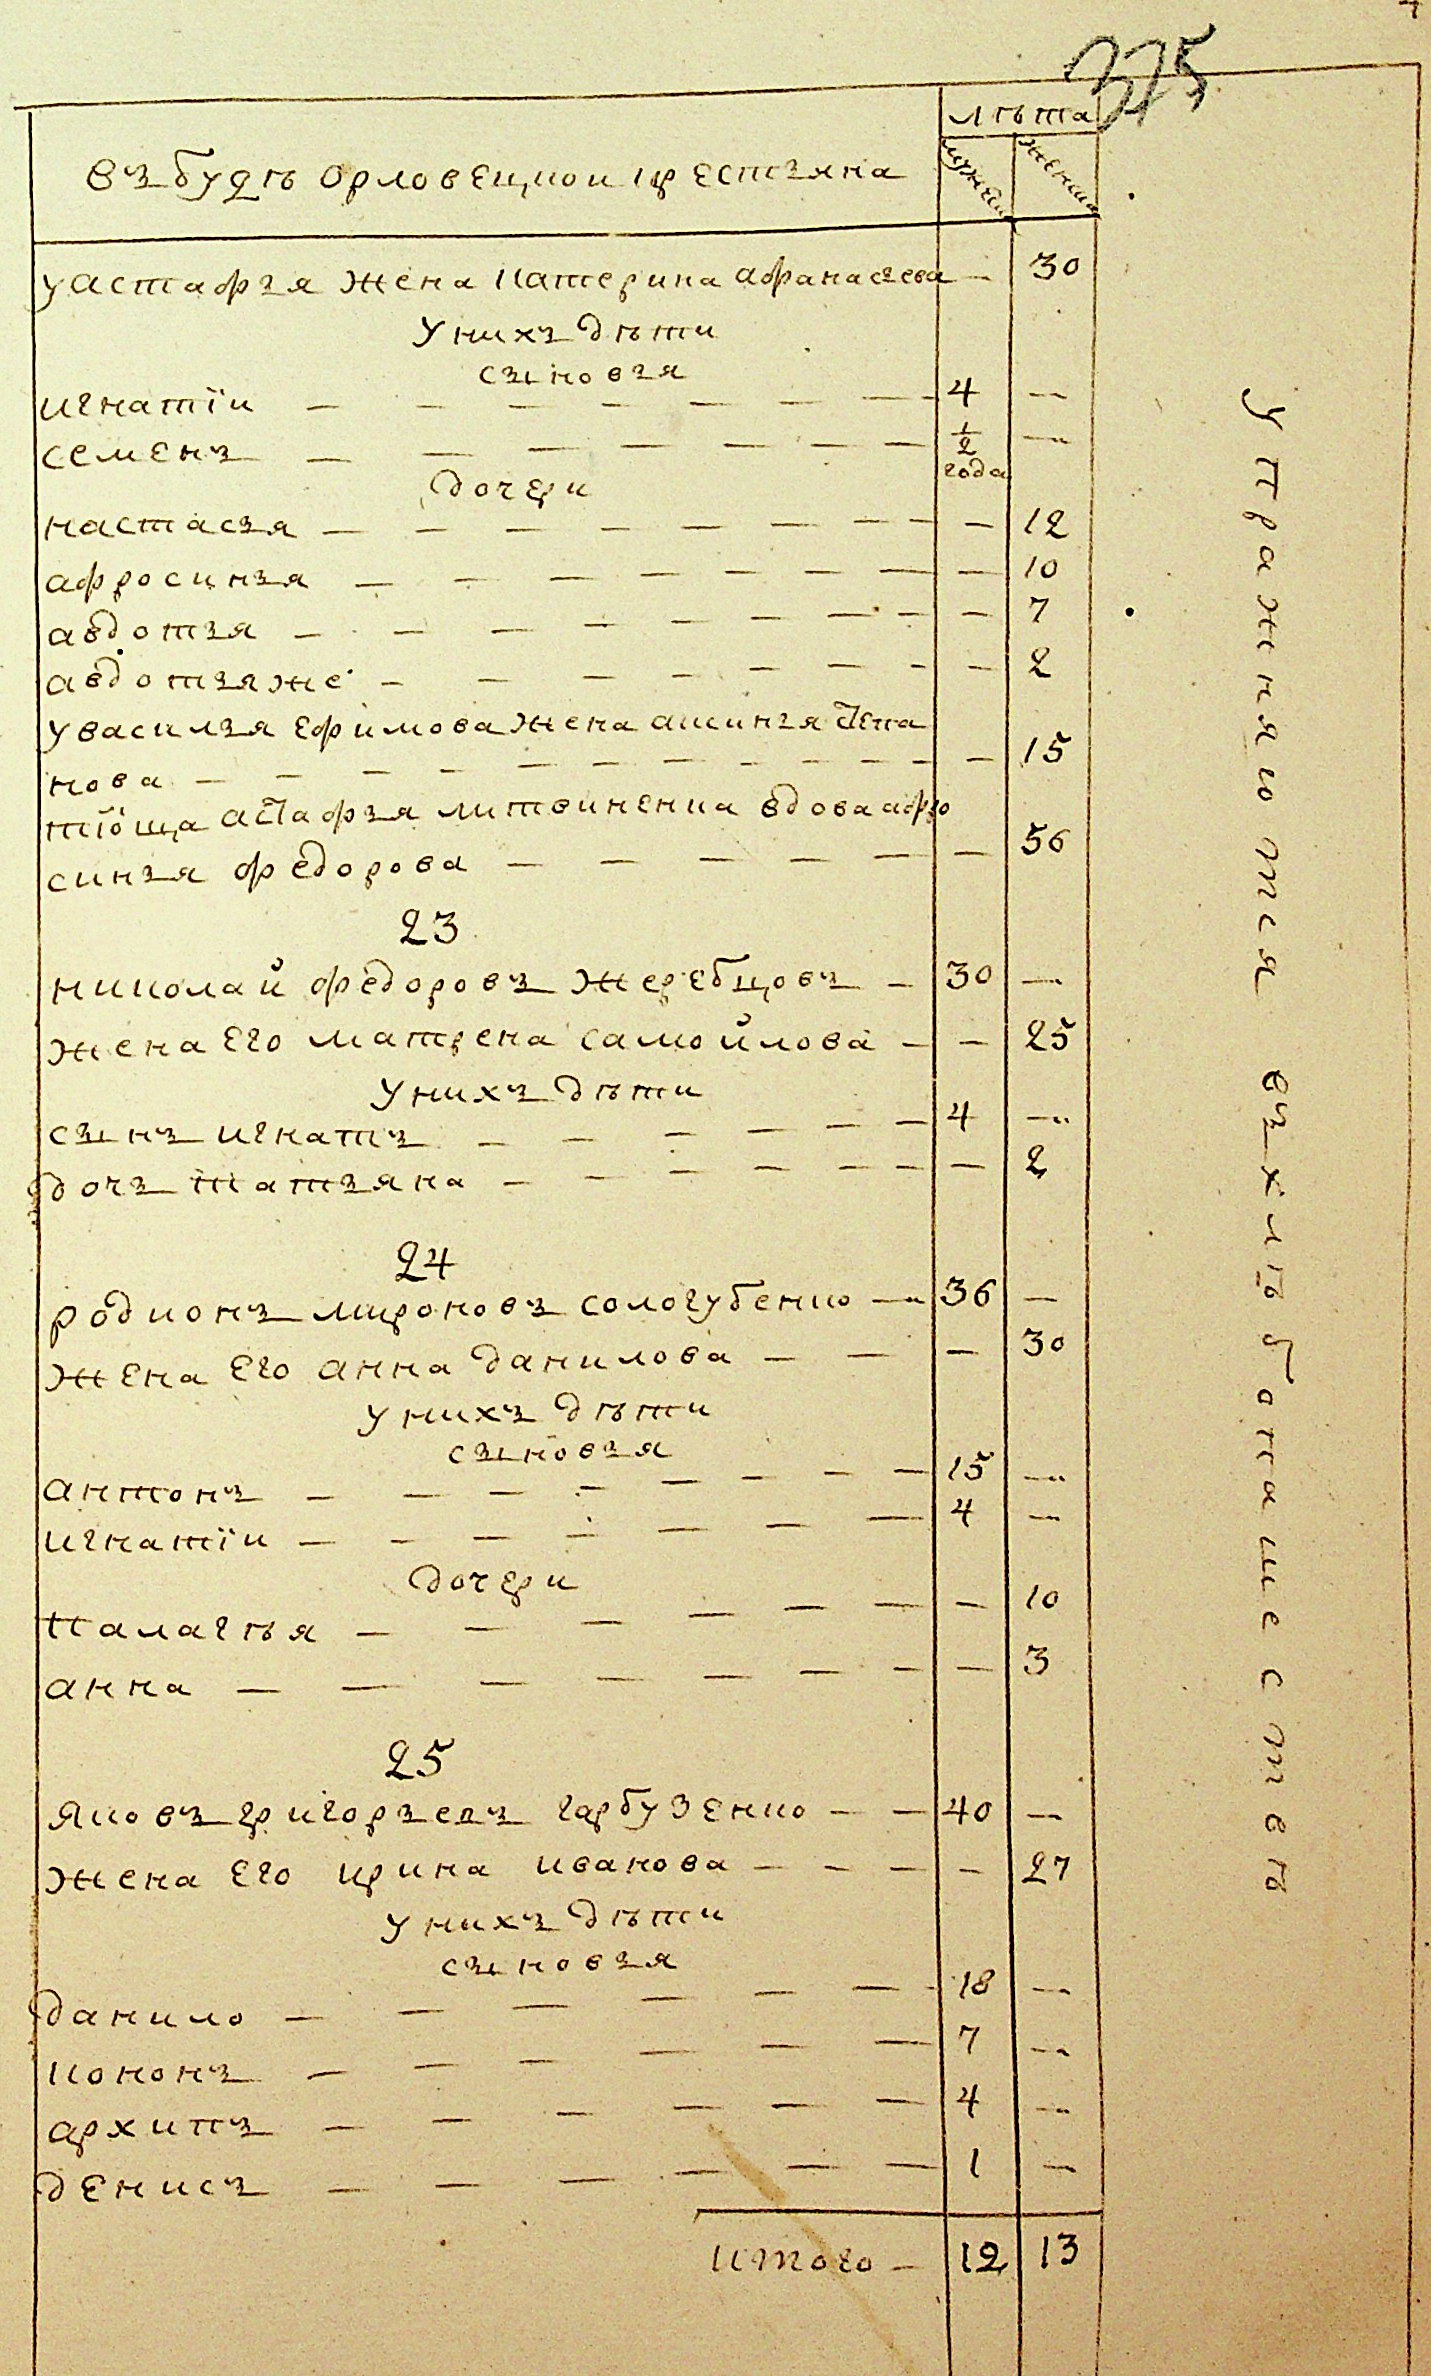 375
лѣта
въ будѣ орловецкои крестьяна
мужеска
женска
у астафья жена катерина афанасьева — 30
у нихъ дѣти
сыновья
игнатїи — 4 —
семенъ — 1/2 года —
дочери
настасья — — 12
афросинья — — 10
авдотья — — 7
авдотья же — — 2
у василья ефимова жена аксинья степа
нова — — 15
тїоща астафья литвиненка вдова афро
синья федорова — — 56
23
николай федоровъ жеребцовъ — 30 —
жена его матрена самойлова — — 25
у нихъ дѣти
сынъ игнатъ — 4 —
дочь татьяна — — 2
24
родионъ мироновъ сологубенко — 36 —
жена его анна данилова — — 30
у нихъ дѣти
сыновья
антонъ — 15 —
игнатїи — 4 —
дочери
палагѣя — — 10
анна — — 3
25
яковъ григорьевъ гарбузенко — 40 —
жена его ирина иванова — — 27
у нихъ дѣти
сыновья
данило — 18 —
кононъ — 7 —
архипъ — 4 —
денисъ — 1 —
итого — 12 13
упражняются въ хлѣбопашествѣ